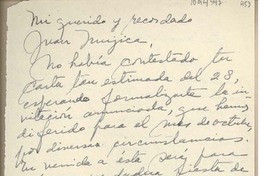 Mi querido y recordado
Juan Mujica,
No había contestado tu
carta tan estimada del 23,
esperando formalizarte la in
vitación anunciada, que hemos
diferido para el mes de octubre,
por diversas circunstancias.
Tu venida a ésta será para
fiesta de